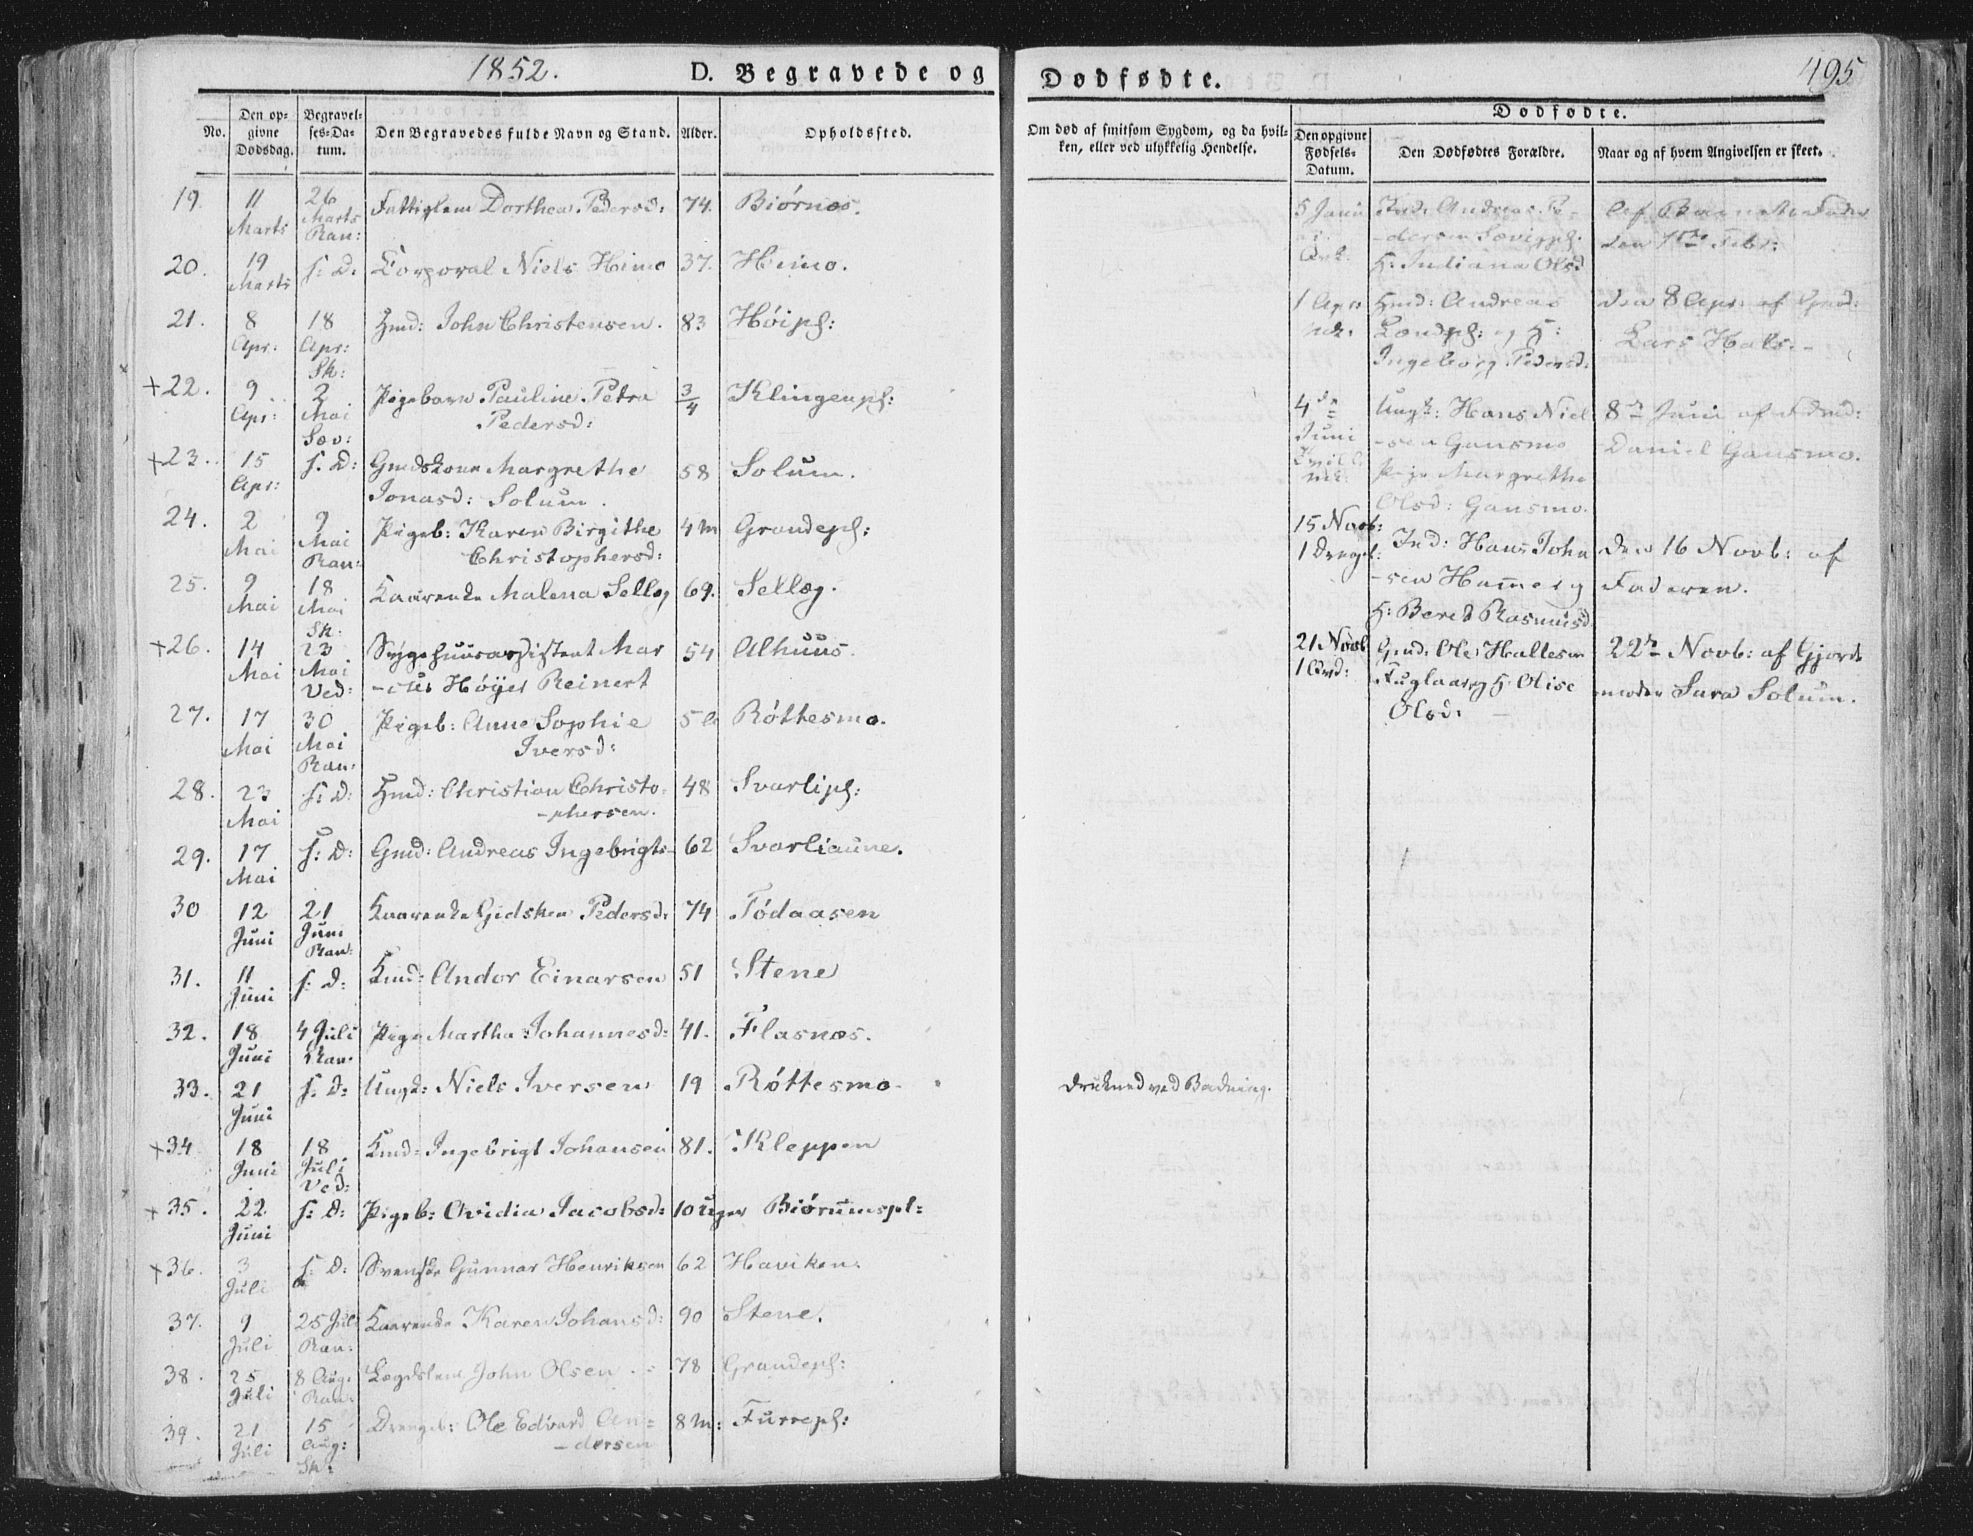 1852. D. Begravede og
Dødfødte. 495
No. Den opgivne Dødsdag. Begravelses-Datum. Den Begravedes fulde Navn og Stand. Alder. Opholdssted.
Om død af smitsom Sygdom, og da hvilken, eller ved ulykkelig Hendelse.
Dødfødte.
Den opgivne Fødsels-Datum. Den Dødfødtes Forældre. Naar og af hvem Angivelsen er skeet.
19. 11 Marts 26 Marts Ran: Fattiglem Dorthea Pedersd: 74. Biørnæs.
20. 19 Marts s: D: Corporal Niels Heimo 37. Heimo.
21. 8 Apr: 18 Apr: Sk: Hmd: John Christensen. 83 Høipl:
+22. 9 Apr: 2 Mai Sæv: Pigebarn Pauline Petra
Pedersd: 3/4 Klingenpl:
+23. 15 Apr: s: D: Gmdskone Margrethe
Jonasd: Solum. 58 Solum.
24. 2 Mai 9 Mai Ran: Pigeb: Karen Birgithe
Christophersd: 4 m Grandepl:
25. 9 Mai 18 Mai Sk: Kaarenke Malena Sellæg 69. Sellæg.
+26. 14 Mai 23 Mai Ved: Sygehuusassistent Mar
-cus Høyer Reinert 54 Alhuus.
27. 17 Mai 30 Mai Ran: Pigeb: Anne Sophie
Iversd: 5 Røttesmo.
28. 23 Mai s: D: Hmd: Christian Christo-
-phersen. 48 Svarlipl:
29. 17 Mai s: D: Gmd: Andreas Ingebrigts- 62 Svarliaune.
30 12 Juni 21 Juni Ran: Kaarenke Gidsken Pedersd: 74 Tødaasen
31. 11 Juni s: D: Kmd: Andor Einarsen 51 Stene
32. 18 Juni 4 Juli Ran: Pige Martha Johannesd: 41. Flasnæs.
33. 21 Juni s: D: Ungk: Niels Iversen 19 Røttesmo. Drukned ved Badning.
+34 18 Juni 18 Juli Ved: Kmd: Ingebrigt Johansen 81. Kleppen
+35. 22 Juni s: D: Pigeb: Ovidia Jacobsd: 10 Uger Biørumspl:
+36. 3 Juli s: D: Svenske Gunnar Henriksen 62 Haviken.
37. 9 Juli 25 Juli Ran: Kaarenke Karen Johansd: 90 Stene.
38. 25 Juli 8 Aug: Ran: Lægdslem John Olsen 78 Grandepl:
39. 21 Juli 15 Aug: Sk: Drengeb: Ole Edvard An-
-dersen 8 m: Furrepl:
5 Janu Ind: Andreas Pe-
-dersen Sævigpl:
H: Indiana Olsd Af Barnets Fader
den 1ste Febr:
1 Apr: Hmd: Andreas
Landpl: og H:
Ingeborg Pedersd: den 8 Apr: af Gmd:
Lars Hals.
4de Juni Ungk: Hans Niel
-sen Gansmo
Pige Margrethe
Olsd: Gansmo. 8de Juni af
Daniel Gansmo.
15 Novb: 1 Drengeb: Ind: Hans John
-sen Hammer og
H: Bered Rasmusd den 16 Novb: af
Faderen.
21 Novb 1 Gmd: Ole Haltesen
Fuglaas og H: Olise
Olsd: 22de Novb: af Gjorde
moder Sara Solum.